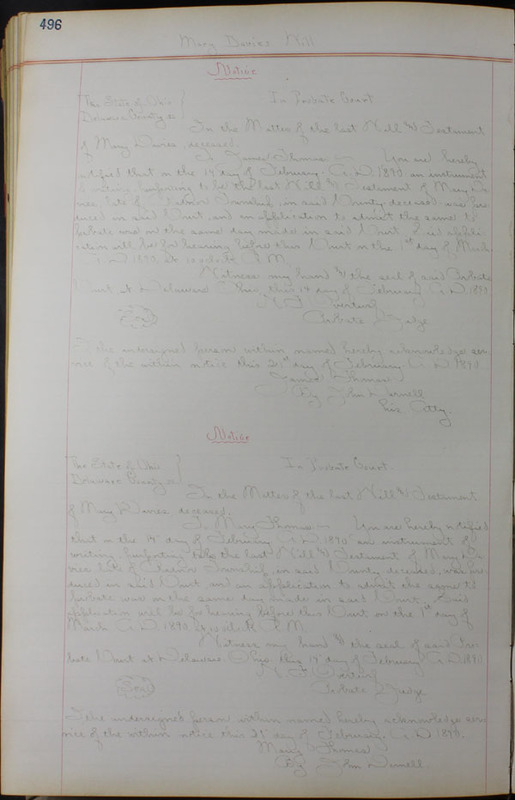 496
Mary Davies Will
Notice
The State of Ohio
Delaware County ss
In Probate Court
In the Matter of the last Will & Testament
of Mary Davies, deceased.
To James Thomas You are hereby
notified that on the 19 day of February A.D. 1890 an instrument
in writing purporting to be the last Will & Testament of Mary Da-
vies, late of Township, in said County deceased, was pro-
duced in said Court, and an application to admit the same to
probate was on the same day made in said Court. Said appli-
cation will be for hearing before this Court on the 1st day of March
A.D. 1890, at 10 o'clock A.M.
Witness my hand & the seal of said Probate
Court at Delaware Ohio, this 19 day of February A.D. 1890
Probate Judge
Seal
I the undersigned person within named hereby acknowledge ser-
vice of the within notice this 21st day of February A.D. 1890
James Thomas
By John
his Atty.
Notice
The State of Ohio
Delaware County ss
In Probate Court
In the Matter of the last Will & Testament
of Mary Davies deceased.
To Mary Thomas You are hereby notified
that on the 19 day of February A.D. 1890 an instrument of
writing purporting to be the last Will & Testament of Mary Da-
vies late of Township, in said County deceased, was pro-
duced in said Court and an application to admit the same to
probate was on the same day made in said Court. Said
application will be for hearing before this Court on the 1st day of
March A.D. 1890, at 10 o'clock A.M.
Witness my hand & the seal of said Pro-
bate Court at Delaware, Ohio, this 19 day of February A.D. 1890
Probate Judge
Seal
I the undersigned person within named hereby acknowledge ser-
vice of the within notice this 21 day of February, A.D. 1890.
Mary Thomas
By John